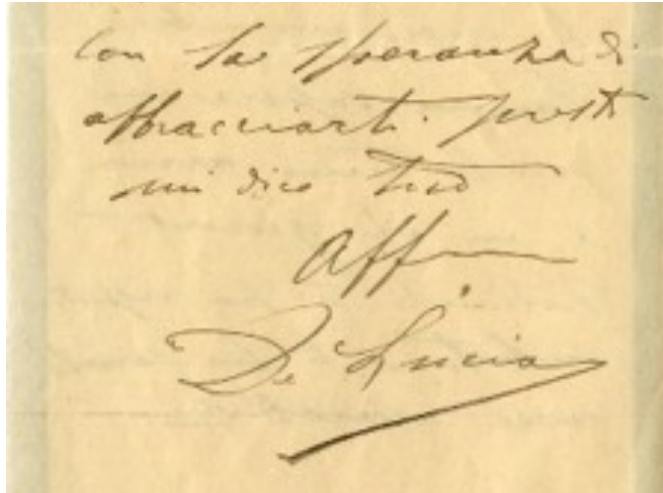 Con la speranza di
abbracciarti presto
mi dico tuo
Aff
De Lucia